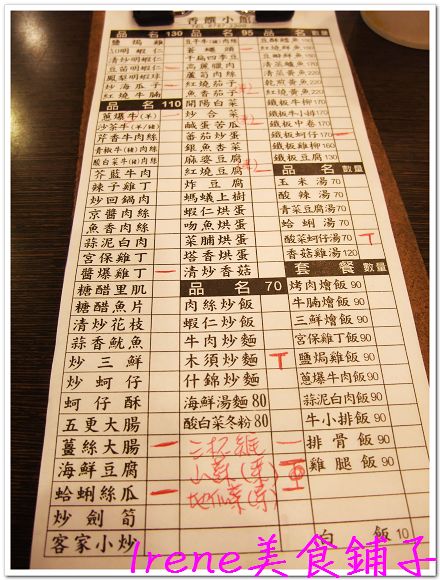 香饌小館
品 名 130
鹽焗雞
清炒蝦仁
豆苗蝦仁
鳳梨明蝦球
炒海瓜子
紅燒牛腩
品 名 110
蔥爆牛(羊)
沙茶牛(羊/豬)
芹香牛肉絲
青椒牛(豬)肉絲
酸白菜牛(豬)肉
芥藍牛肉
辣子雞丁
炒回鍋肉
京醬肉絲
魚香肉絲
蒜泥白肉
宮保雞丁
醬爆雞丁
糖醋里肌
糖醋魚片
清炒花枝
蒜香魷魚
炒三鮮
炒蚵仔
蚵仔酥
五更大腸
薑絲大腸
海鮮豆腐
蛤蜊絲瓜
炒劍筍
客家小炒
品 名 95
豆干牛(豬)肉絲
蒼蠅頭
干扁四季豆
高麗臘肉
蘆筍肉絲
紅燒茄子
魚香茄子
開陽白菜
炒合菜
鹹蛋苦瓜
蕃茄炒蛋
銀魚杏菜
麻婆豆腐
紅燒豆腐
炸豆腐
螞蟻上樹
蝦仁烘蛋
吻魚烘蛋
菜脯烘蛋
塔香烘蛋
清炒香菇
品 名 70
肉絲炒飯
蝦仁炒飯
牛肉炒麵
木須炒麵
什錦炒麵
海鮮湯麵 80
酸白菜冬粉 80
三杯雞
品 名 數量
鐵板牛柳 170
鐵板牛小排
鐵板中卷
鐵板蚵仔 170
鐵板雞柳
鐵板豆腐 130
品 名 數量
玉米湯 70
酸辣湯 70
青菜豆腐湯 70
蛤蜊湯 70
酸菜蚵仔湯 70
香菇雞湯 120
套 餐 數量
烤肉燴飯 90
牛腩燴飯 90
三鮮燴飯 90
宮保雞丁飯 90
鹽焗雞飯 90
蔥爆牛肉飯 90
蒜泥白肉飯 90
牛小排飯 90
排骨飯 90
雞腿飯 90
白 飯 10
Irene美食鋪子